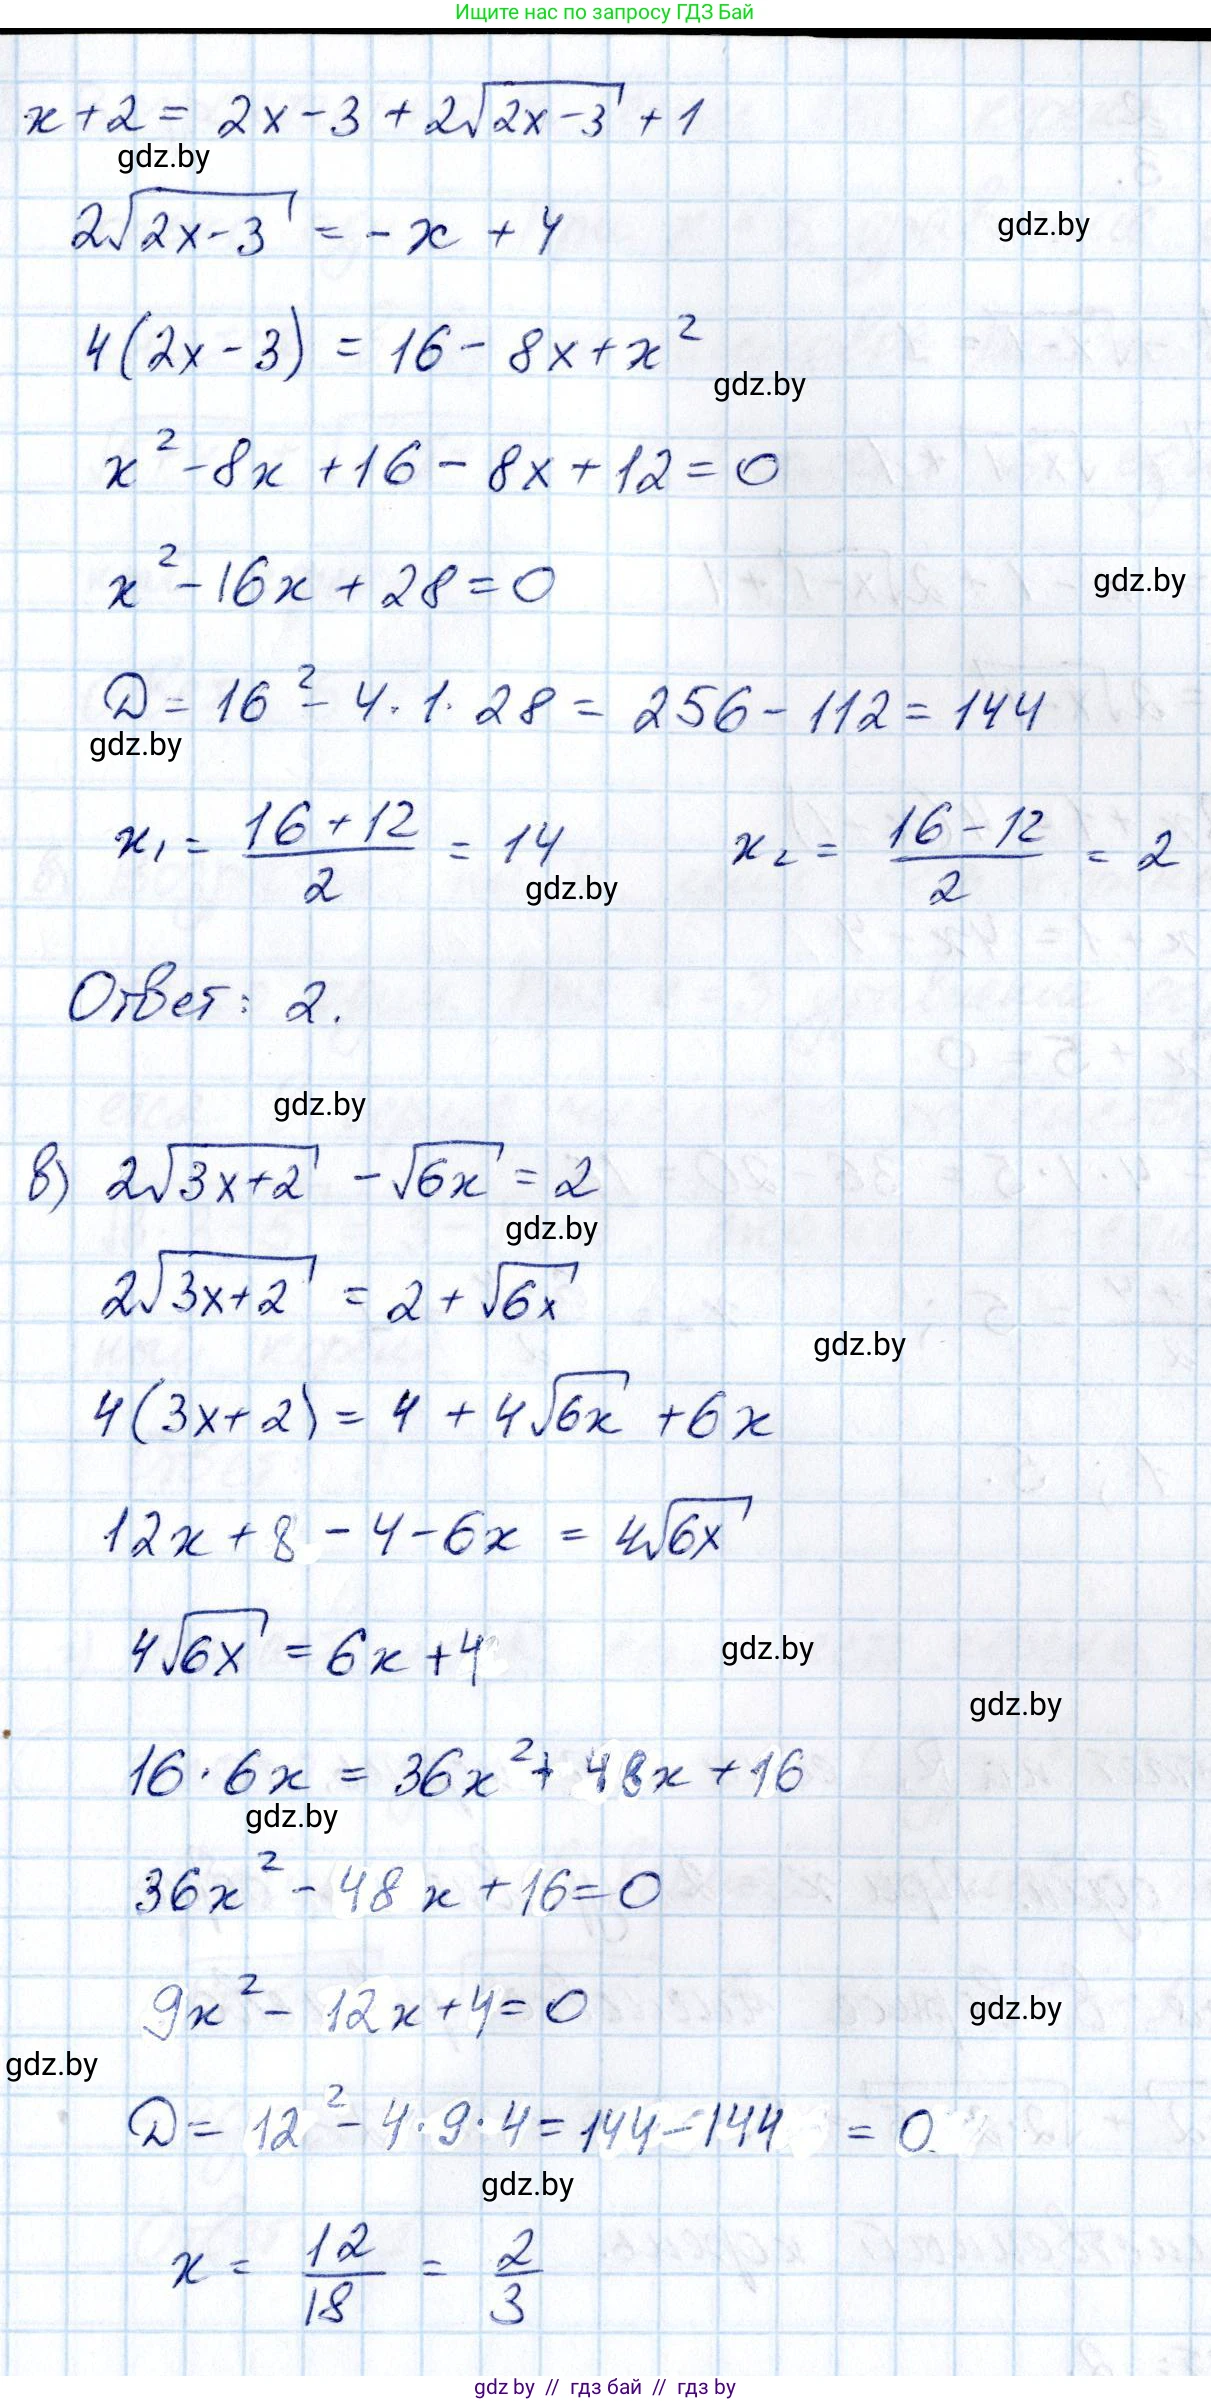 Ищите нас по запросу ГДЗ Бай
x + 2 = 2x - 3 + 2√(2x - 3) + 1
gdz.by
2√(2x - 3) = -x + 4
gdz.by
4(2x - 3) = 16 - 8x + x²
gdz.by
x² - 8x + 16 - 8x + 12 = 0
x² - 16x + 28 = 0
gdz.by
D = 16² - 4 · 1 · 28 = 256 - 112 = 144
gdz.by
x₁ = (16 + 12)/2 = 14    x₂ = (16 - 12)/2 = 2
gdz.by
Ответ: 2.
gdz.by
в) 2√(3x + 2) - √(6x) = 2
gdz.by
2√(3x + 2) = 2 + √(6x)
gdz.by
4(3x + 2) = 4 + 4√(6x) + 6x
12x + 8 - 4 - 6x = 4√(6x)
4√(6x) = 6x + 4
gdz.by
gdz.by
16 · 6x = 36x² + 48x + 16
gdz.by
36x² - 48x + 16 = 0
9x² - 12x + 4 = 0
gdz.by
gdz.by
D = 12² - 4 · 9 · 4 = 144 - 144 = 0
gdz.by
x = 12/18 = 2/3
gdz by // гдз бай // гдз by